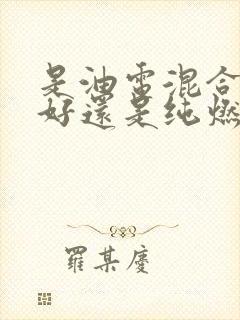 是油電混合
好還是纯燃
羅某慶